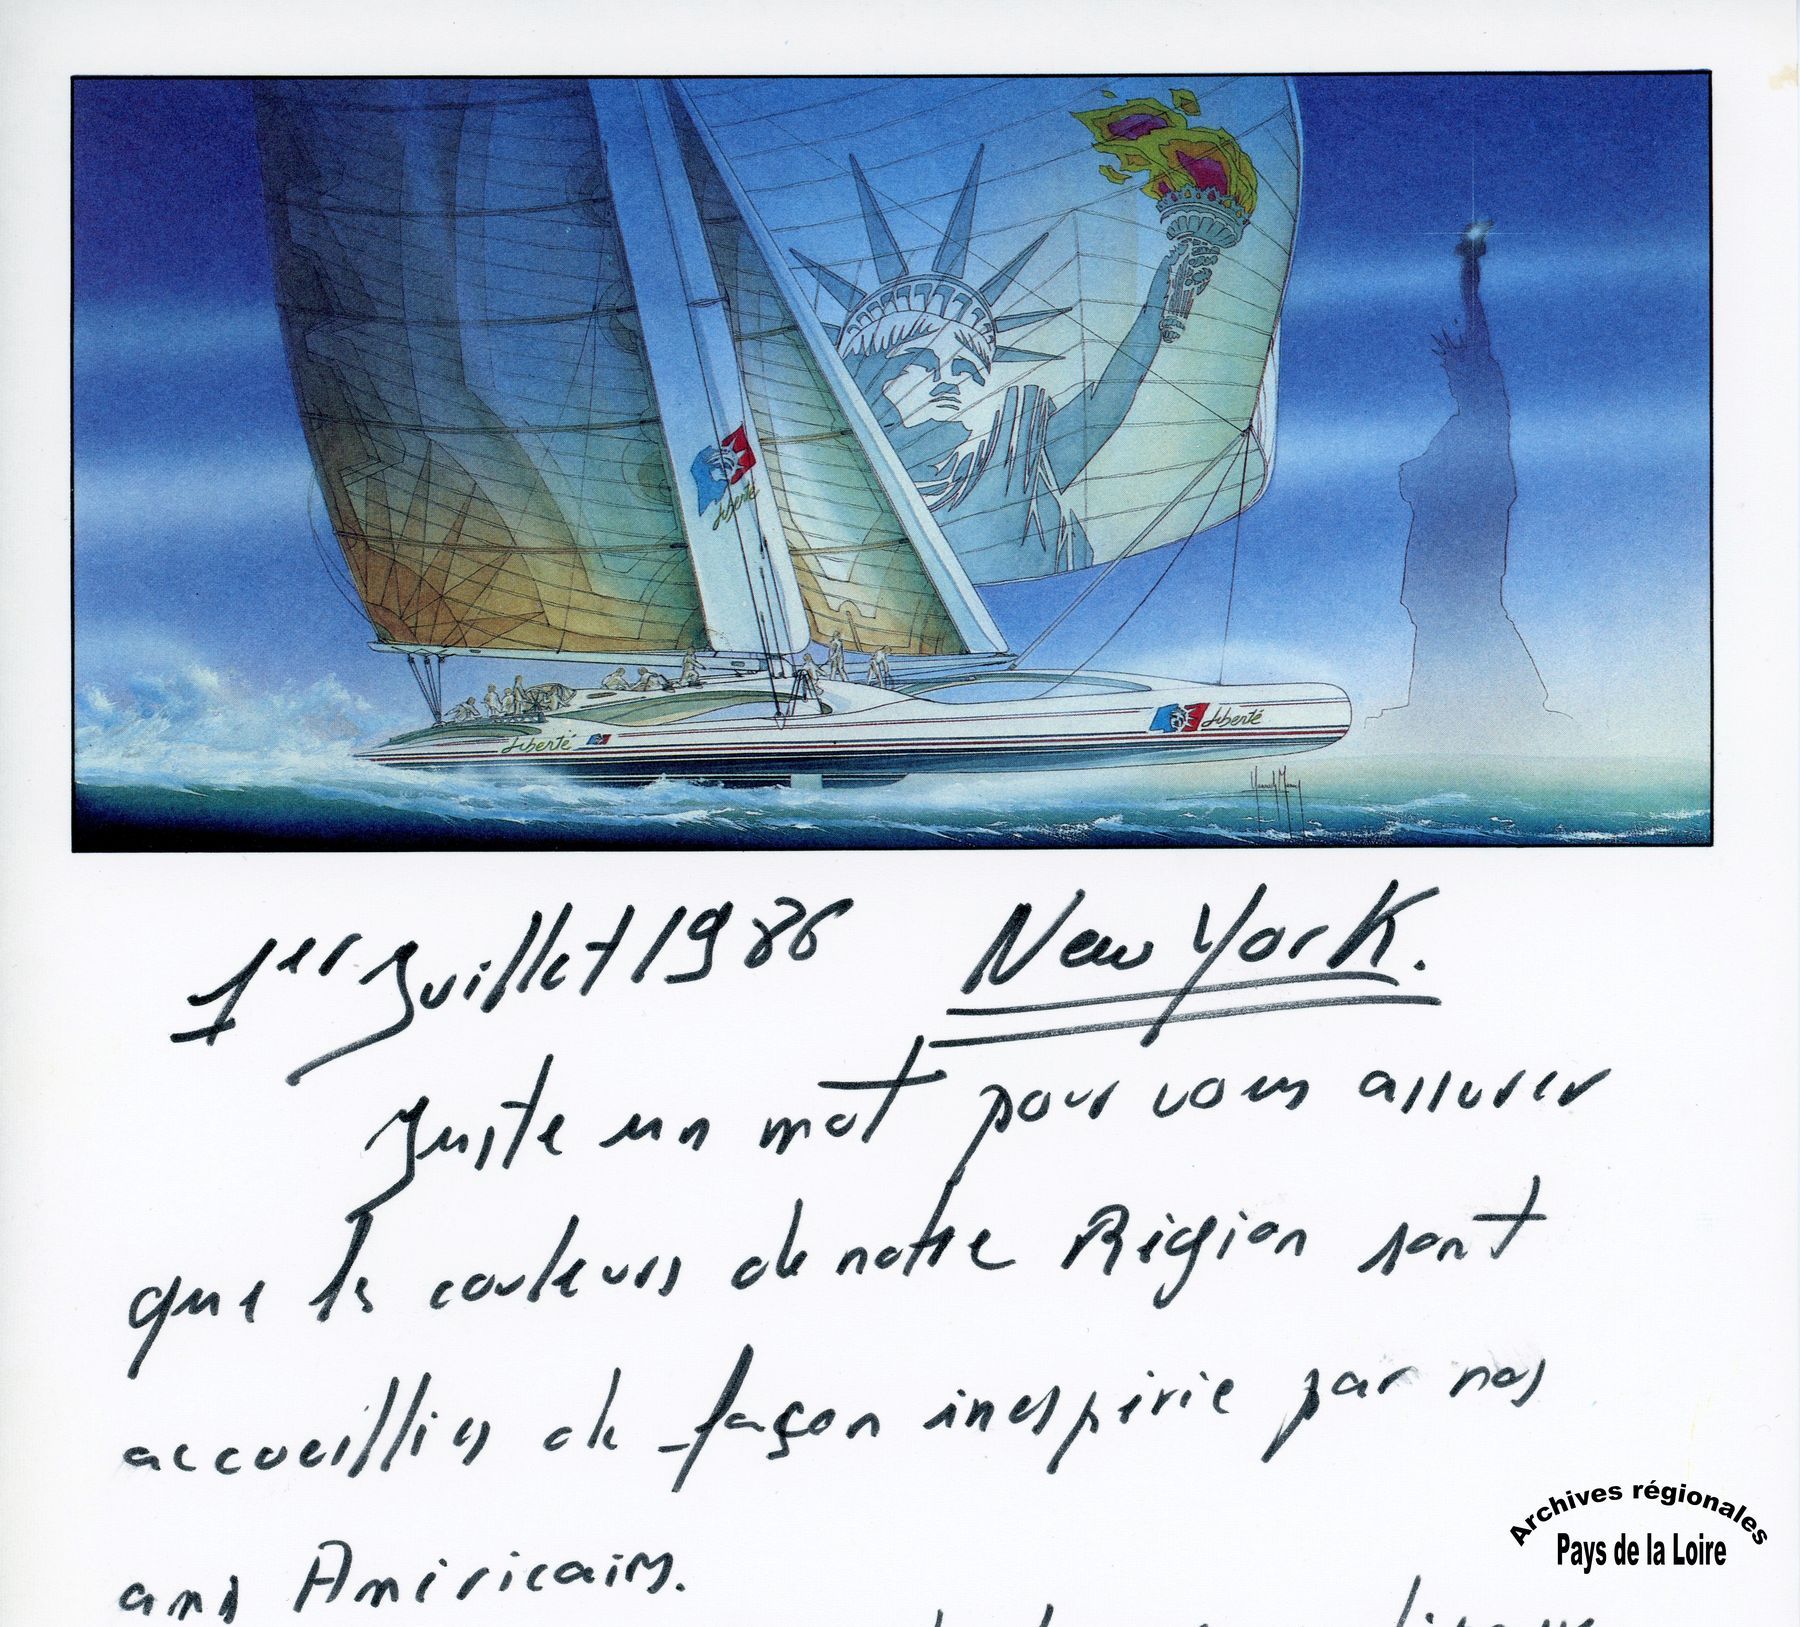 Liberté
Liberté
Liberté
1er Juillet 1986 New York.
Juste un mot pour vous assurer
que les couleurs de notre Région sont
accueillies de façon inespérée par nos
amis Américains.
Archives régionales
Pays de la Loire